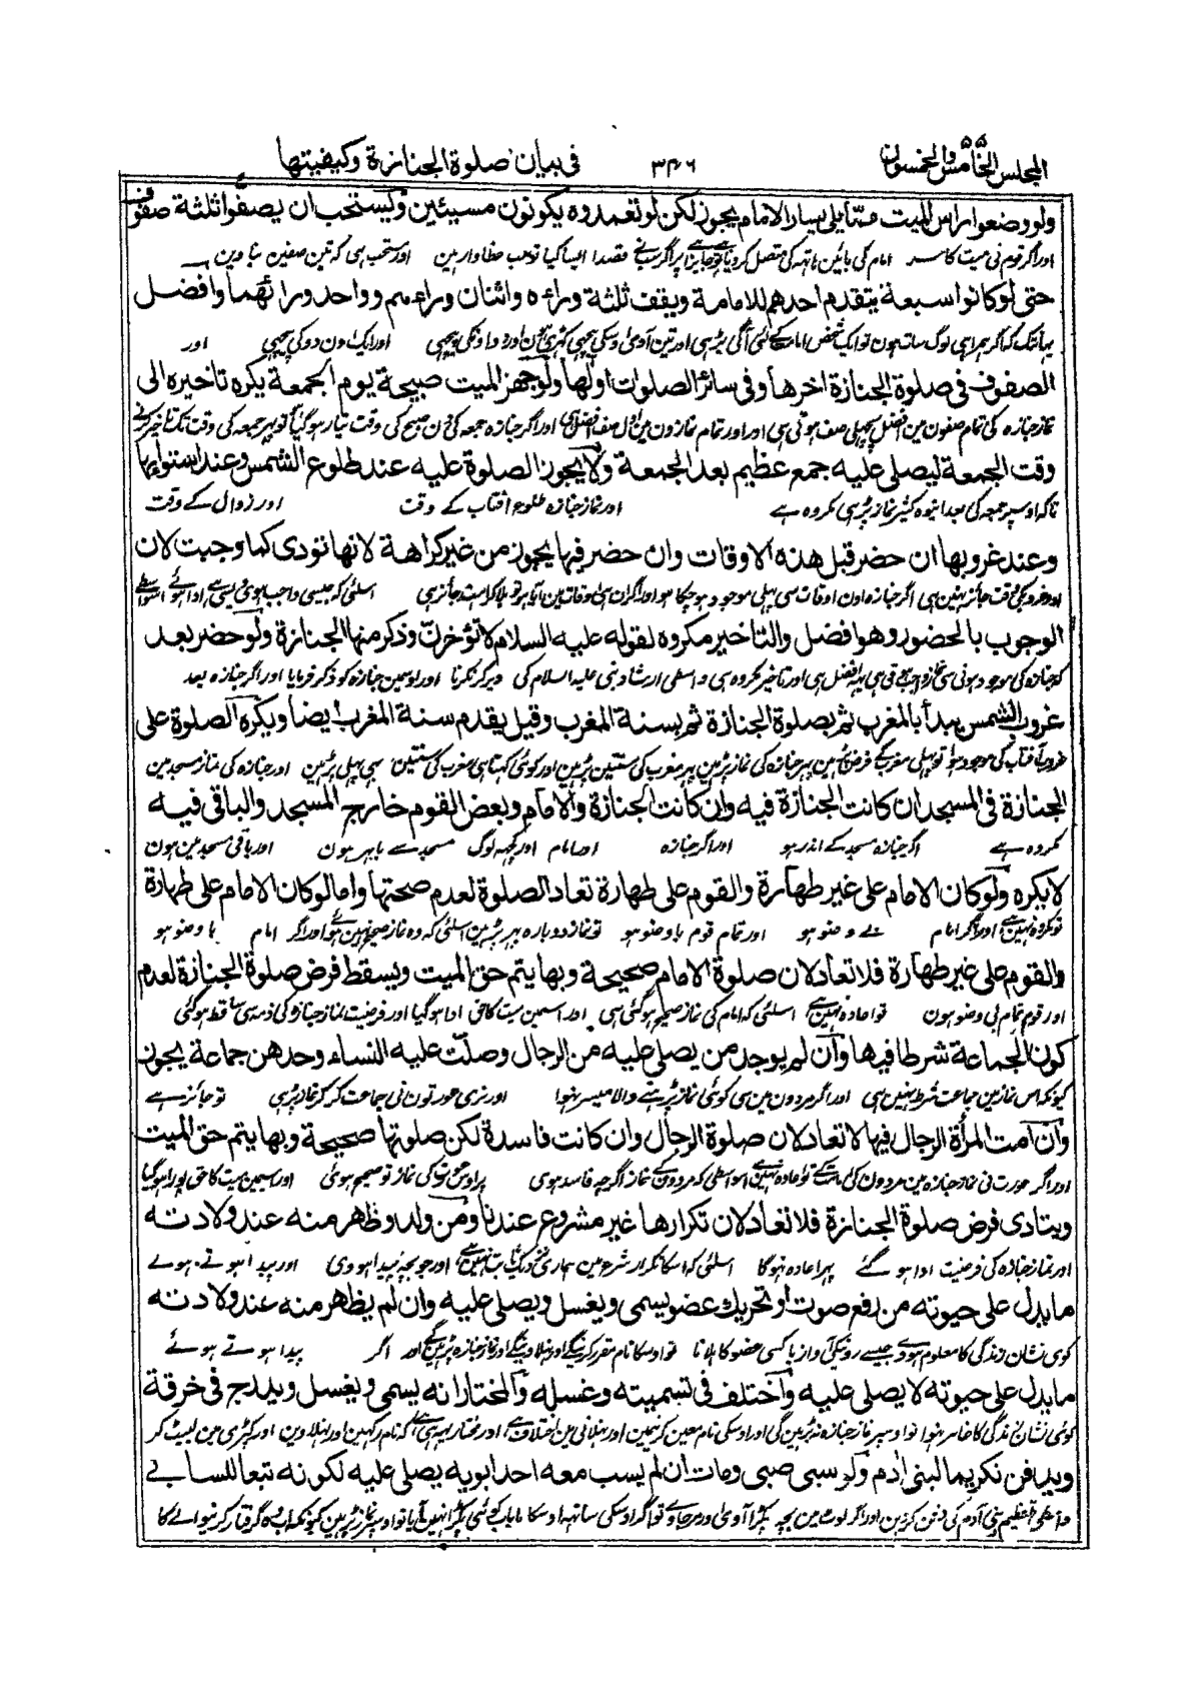 المجلس الخامس والخمسون ۳۴۶ فی بیان صلوة الجنازة وکیفیتها
ولو وضعوا راس المیت مما یلی یسار الامام یجوز لکن لو تعمدوه یکونون مسیئین ویستحب ان یصفوا ثلثة صفوف
اور اگر قوم نی میت کا سر امام کی بائین ہاتہہ کی متصل کردیا تو جایز ہی پر اگر سب نے قصدا ایسا کیا تو سب خطاوار ہین اور مستحب ہی کہ تین صفین بناوین
حتی لو کانوا سبعة یتقدم احدهم للامامة ویقف ثلثة وراءه واثنان وراءهم وواحد ورائهما وافضل
یہانتک کہ اگر ہمراہی لوگ سات ہون تو ایک شخص امامت کے لئی آگی بڑہی اور تین آدمی اوسکی پیچہی کہڑی ہون اور دو اونکی پیچہی اور ایک اون دو کی پیچہی اور
الصفوف فی صلوة الجنازة اخرها وفی سائر الصلوات اولها ولو جهز المیت صبیحة یوم الجمعة یکره تاخیره الی
نماز جنازہ کی تمام صفون مین افضل پچہلی صف ہوتی ہی اور اور تمام نمازون مین اول صف افضل ہی اور اگر جنازہ جمعہ کی دن صبح کی وقت تیار ہوگیا تو پہر جمعہ کی وقت تک تاخیر کرنے
وقت الجمعة لیصلی علیه جمع عظیم بعد الجمعة ولا یجوز الصلوة علیه عند طلوع الشمس وعند استوائها
تاکہ اوسپر جمعہ کی بعد انبوہ کثیر نماز پڑہی مکروہ ہے اور نماز جنازہ طلوع افتاب کے وقت اور زوال کے وقت
وعند غروبها ان حضر قبل هذه الاوقات وان حضر فیها یجوز من غیر کراهة لانها تودی کما وجبت لان
اور غروب کی وقت جائز نہین ہی اگر جنازہ اون اوقات سی پہلی موجود ہوچکا ہو اور اگر ان ہی اوقات مین آیا ہو تو بلا کراہت جائز ہی اسلئی کہ جیسی واجب ہوئی ویسی ہی ادا ہوئے اسواسطے
الوجوب بالحضور وهو افضل والتاخیر مکروه لقوله علیه السلام لا تؤخرن وذکر منها الجنازة ولو حضر بعد
کہ جنازہ کی موجود ہونی سی نماز واجب ہوتی ہی یہہ افضل ہی اور تاخیر مکروہ ہی واسطی ارشاد نبی علیہ السلام کی دیر کرنکرنا اور اوسمین جنازہ کو ذکر فرمایا اور اگر جنازہ بعد
غروب الشمس یبدأ بالمغرب ثم بصلوة الجنازة ثم بسنة المغرب وقیل یقدم سنة المغرب ایضا ویکره الصلوة علی
غروب آفتاب کی موجود ہو تو پہلی مغرب کے فرض پڑہین پہر جنازہ کی نماز پڑہین پہر مغرب کی سنتین پڑہین اور کوئی کہتا ہی مغرب کی سنتین بہی پہلی پڑہین اور جنازہ کی نماز مسجد مین
الجنازة فی المسجد ان کانت الجنازة فیه وان کانت الجنازة والامام وبعض القوم خارج المسجد والباقی فیه
مکروہ ہے اگر جنازہ مسجد کے اندر ہو اور اگر جنازہ اور امام اور کچہہ لوگ مسجد سے باہر ہون اور باقی مسجد مین ہون
لا یکره ولو کان الامام علی غیر طهارة والقوم علی طهارة تعاد الصلوة لعدم صحتها واما لو کان الامام علی طهارة
تو مکروہ نہین ہے اور اگر امام بے وضو ہو اور تمام قوم با وضو ہو تو نماز دوبارہ پہر پڑہین اسلئی کہ وہ نماز صحیح نہین ہوئے اور اگر امام با وضو ہو
والقوم علی غیر طهارة فلا تعاد لان صلوة الامام صحیحة وبها یتم حق المیت ویسقط فرض صلوة الجنازة لعدم
اور قوم تمام بی وضو ہون تو اعادہ نہین ہے اسلئی کہ امام کی نماز صحیح ہوگئی ہی اور اسمین میت کا حق ادا ہوگیا اور فرضیت نماز جنازہ کی ذمہ سی ساقط ہوگئی
کون الجماعة شرطا فیها وان لم یوجد من یصلی علیه من الرجال وصلت علیه النساء وحدهن جماعة یجوز
کیونکہ اس نماز مین جماعت شرط نہین ہی اور اگر مردون مین سی کوئی نماز پڑہنے والا میسر نہوا اور نری عورتون نی جماعت کر کر نماز پڑہی تو جائز ہے
وان امت المرأة الرجال فیها لا تعاد لان صلوة الرجال وان کانت فاسدة لکن صلوتها صحیحة وبها یتم حق المیت
اور اگر عورت نی نماز جنازہ مین مردون کی امامت کے تو اعادہ نہین ہے اسواسطی کہ مردون کے نماز اگرچہ فاسد ہوی پر اوس عورت کی نماز تو صحیح ہوئی اور اسیمین میت کا حق پورا ہوگیا
ویتادی فرض صلوة الجنازة فلا تعاد لان تکرارها غیر مشروع عندنا ومن ولد وظهر منه عند ولادته
اور نماز جنازہ کی فرضیت ادا ہو گئے پہر اعادہ نہوگا اسلئی کہ اسکا تکرار شرع مین ہماری نزدیک ثابت نہین ہے اور جو بچہ پیدا ہووی اور پیدا ہوتے ہوے
ما یدل علی حیوته من رفع صوت او تحریک عضو یسمی ویغسل ویصلی علیه وان لم یظهر منه عند ولادته
کوی نشان زندگی کا معلوم ہووے جیسے رونیکی آواز یا کسی عضو کا ہلانا تو اوسکا نام مقرر کرینگے اور نہلاوینگے اور نماز جنازہ پڑہینگے اور اگر پیدا ہوتے ہوئے
ما یدل علی حیوته لا یصلی علیه واختلف فی تسمیته وغسله والمختار انه یسمی ویغسل ویدرج فی خرقة
کوئی نشان زندگی کا ظاہر نہوا تو اوسپر نماز جنازہ نہ پڑہین گی اور اوسکی نام معین کرنیمین اور نہلانی مین اختلاف ہے اور مختار یہہ ہی ہے کہ نام رکہین اور نہلاوین اور کپڑی مین لپیٹ کر
ویدافن تکریما لبنی ادم ولو سبی صبی ومات ان لم یسب معه احد ابویه یصلی علیه لکونه تبعا للسابی
واسطی تعظیم بنی آدم کی دفن کردین اور اگر لوٹ مین بچہ پکڑا آوی اور مرجاوے تو اگر اوسکی ساتہہ اوسکا ما باپ کوئی پکڑا نہین آیا تو اوسپر نماز پڑہین کیونکہ اب وہ گرفتار کرنیوالے کا